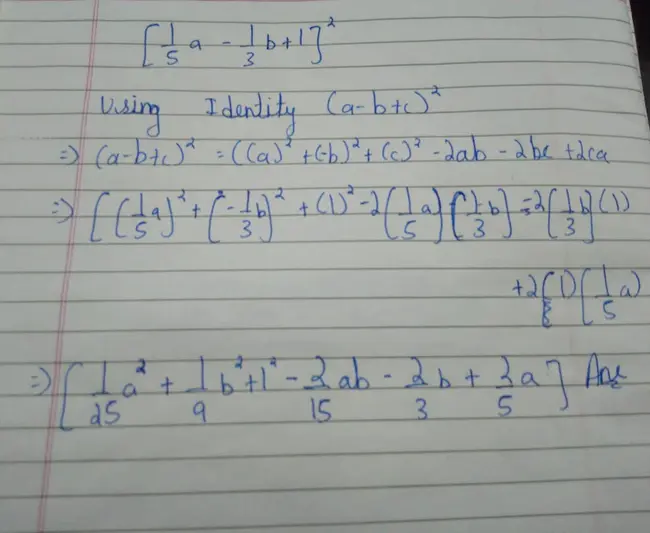 [1/5 a - 1/3 b + 1]²
Using Identity (a-b+c)²
⇒ (a-b+c)² = ((a)² + (-b)² + (c)² - 2ab - 2bc + 2ca
⇒ [(1/5 a)² + (-1/3 b)² + (1)² - 2(1/5 a)(1/3 b) - 2(1/3 b)(1)
+ 2(1)(1/5 a)
⇒ [1/25 a² + 1/9 b² + 1² - 2/15 ab - 2/3 b + 2/5 a] Ans